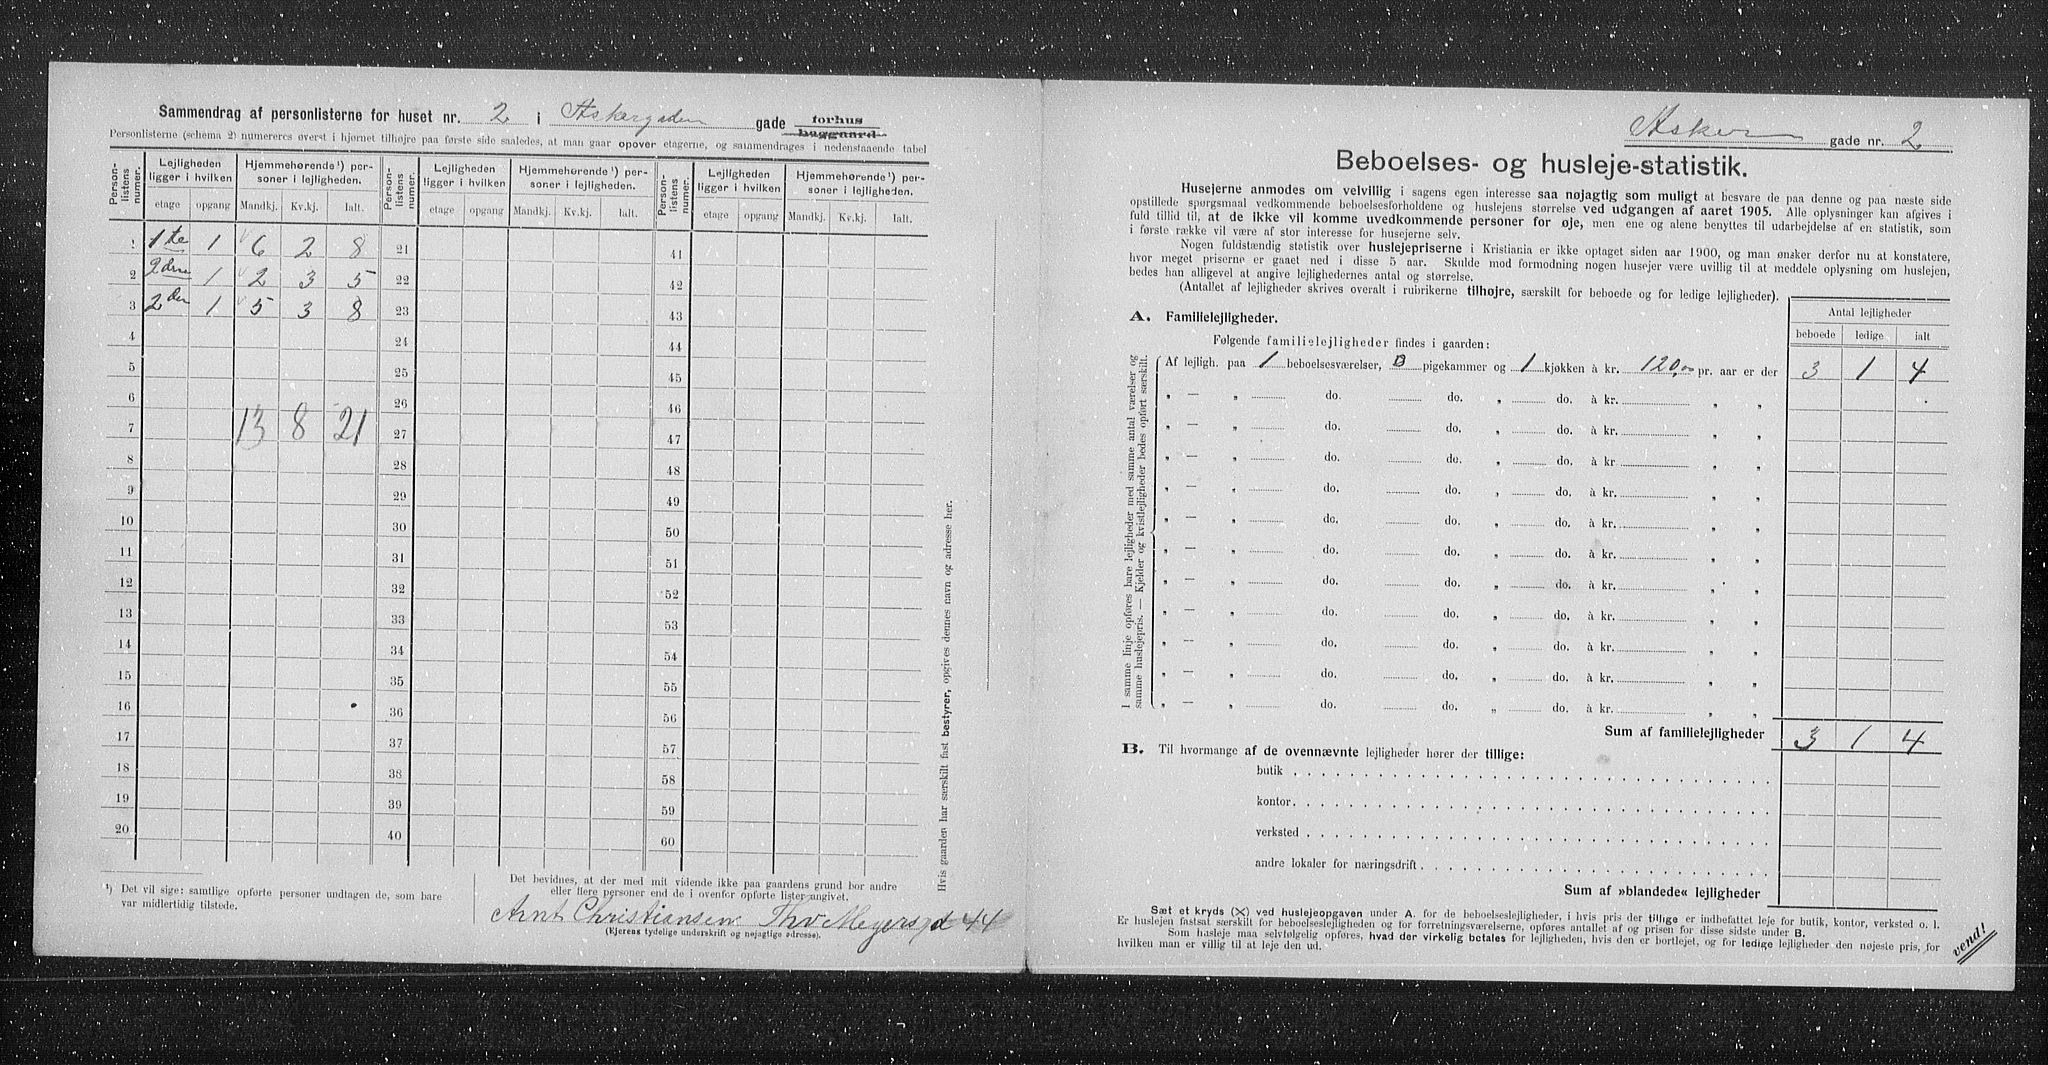 Sammendrag af personlisterne for huset nr. 2 i Askergaden gade forhus baggaard
Personlisterne (schema 2) numereres øverst i hjørnet tilhøjre paa første side saaledes, at man gaar opover etagerne, og sammendrages i nedenstaaende tabel
Person-listens numer. Lejligheden ligger i hvilken etage opgang Hjemmehørende¹) personer i lejligheden. Mandkj. Kv.kj. Ialt.
Person-listens numer. Lejligheden ligger i hvilken etage opgang Hjemmehørende¹) personer i lejligheden. Mandkj. Kv.kj. Ialt.
Person-listens numer. Lejligheden ligger i hvilken etage opgang Hjemmehørende¹) personer i lejligheden. Mandkj. Kv.kj. Ialt.
1 1te 1 6 2 8 21 41
2 2den 1 2 3 5 22 42
3 2den 1 5 3 8 23 43
4 24 44
5 25 45
6 26 46
7 13 8 21 27 47
8 28 48
9 29 49
10 30 50
11 31 51
12 32 52
13 33 53
14 34 54
15 35 55
16 36 56
17 37 57
18 38 58
19 39 59
20 40 60
¹) Det vil sige: samtlige opførte personer undtagen de, som bare
var midlertidig tilstede.
Det bevidnes, at der med mit vidende ikke paa gaardens grund bor andre
eller flere personer end de i ovenfor opførte lister angivet.
Arnt Christiansen Thv Meyersgd 44
(Ejerens tydelige underskrift og nøjagtige adresse).
Hvis gaarden har særskilt fast bestyrer, opgives dennes navn og adresse her.
Asker gade nr. 2
Beboelses- og husleje-statistik.
Husejerne anmodes om velvillig i sagens egen interesse saa nøjagtig som muligt at besvare de paa denne og paa næste side
opstillede spørgsmaal vedkommende beboelsesforholdene og huslejens størrelse ved udgangen af aaret 1905. Alle oplysninger kan afgives i
fuld tillid til, at de ikke vil komme uvedkommende personer for øje, men ene og alene benyttes til udarbejdelse af en statistik, som
i første række vil være af stor interesse for husejerne selv.
Nogen fuldstændig statistik over huslejepriserne i Kristiania er ikke optaget siden aar 1900, og man ønsker derfor nu at konstatere,
hvor meget priserne er gaaet ned i disse 5 aar. Skulde mod formodning nogen husejer være uvillig til at meddele oplysning om huslejen,
bedes han alligevel at angive lejlighedernes antal og størrelse.
(Antallet af lejligheder skrives overalt i rubrikerne tilhøjre, særskilt for beboede og for ledige lejligheder).
Antal lejligheder
beboede ledige ialt
A. Familielejligheder.
Følgende familielejligheder findes i gaarden:
I samme linje opføres bare lejligheder med samme antal værelser og
samme huslejepris. — Kjelder og kvistlejligheder bedes opført særskilt.
Af lejligh. paa 1 beboelsesværelser, 0 pigekammer og 1 kjøkken à kr. 120,00 pr. aar er der 3 1 4
„ — „ do. do. „ do. à kr. „ „
„ — „ do. do. „ do. à kr. „ „
„ — „ do. do. „ do. à kr. „ „
„ — „ do. do. „ do. à kr. „ „
„ — „ do. do. „ do. à kr. „ „
„ — „ do. do. „ do. à kr. „ „
„ — „ do. do. „ do. à kr. „ „
„ — „ do. do. „ do. à kr. „ „
„ — „ do. do. „ do. à kr. „ „
„ — „ do. do. „ do. à kr. „ „
„ — „ do. do. „ do. à kr. „ „
Sum af familielejligheder 3 1 4
B. Til hvormange af de ovennævnte lejligheder hører der tillige:
butik
kontor
verksted
andre lokaler for næringsdrift
Sum af »blandede« lejligheder
Sæt et kryds (X) ved huslejeopgaven under A. for de beboelseslejligheder, i hvis pris der tillige er indbefattet leje for butik, kontor, verksted o. l.
Er huslejen fastsat særskilt for beboelseslejligheden og for forretningsværelserne, opføres antallet af og prisen for disse sidste under B.
Som husleje maa selvfølgelig opføres, hvad der virkelig betales for lejligheden, hvis den er bortlejet, og for ledige lejligheder den nøjeste pris, for
hvilken man er villig til at leje den ud.
vend!